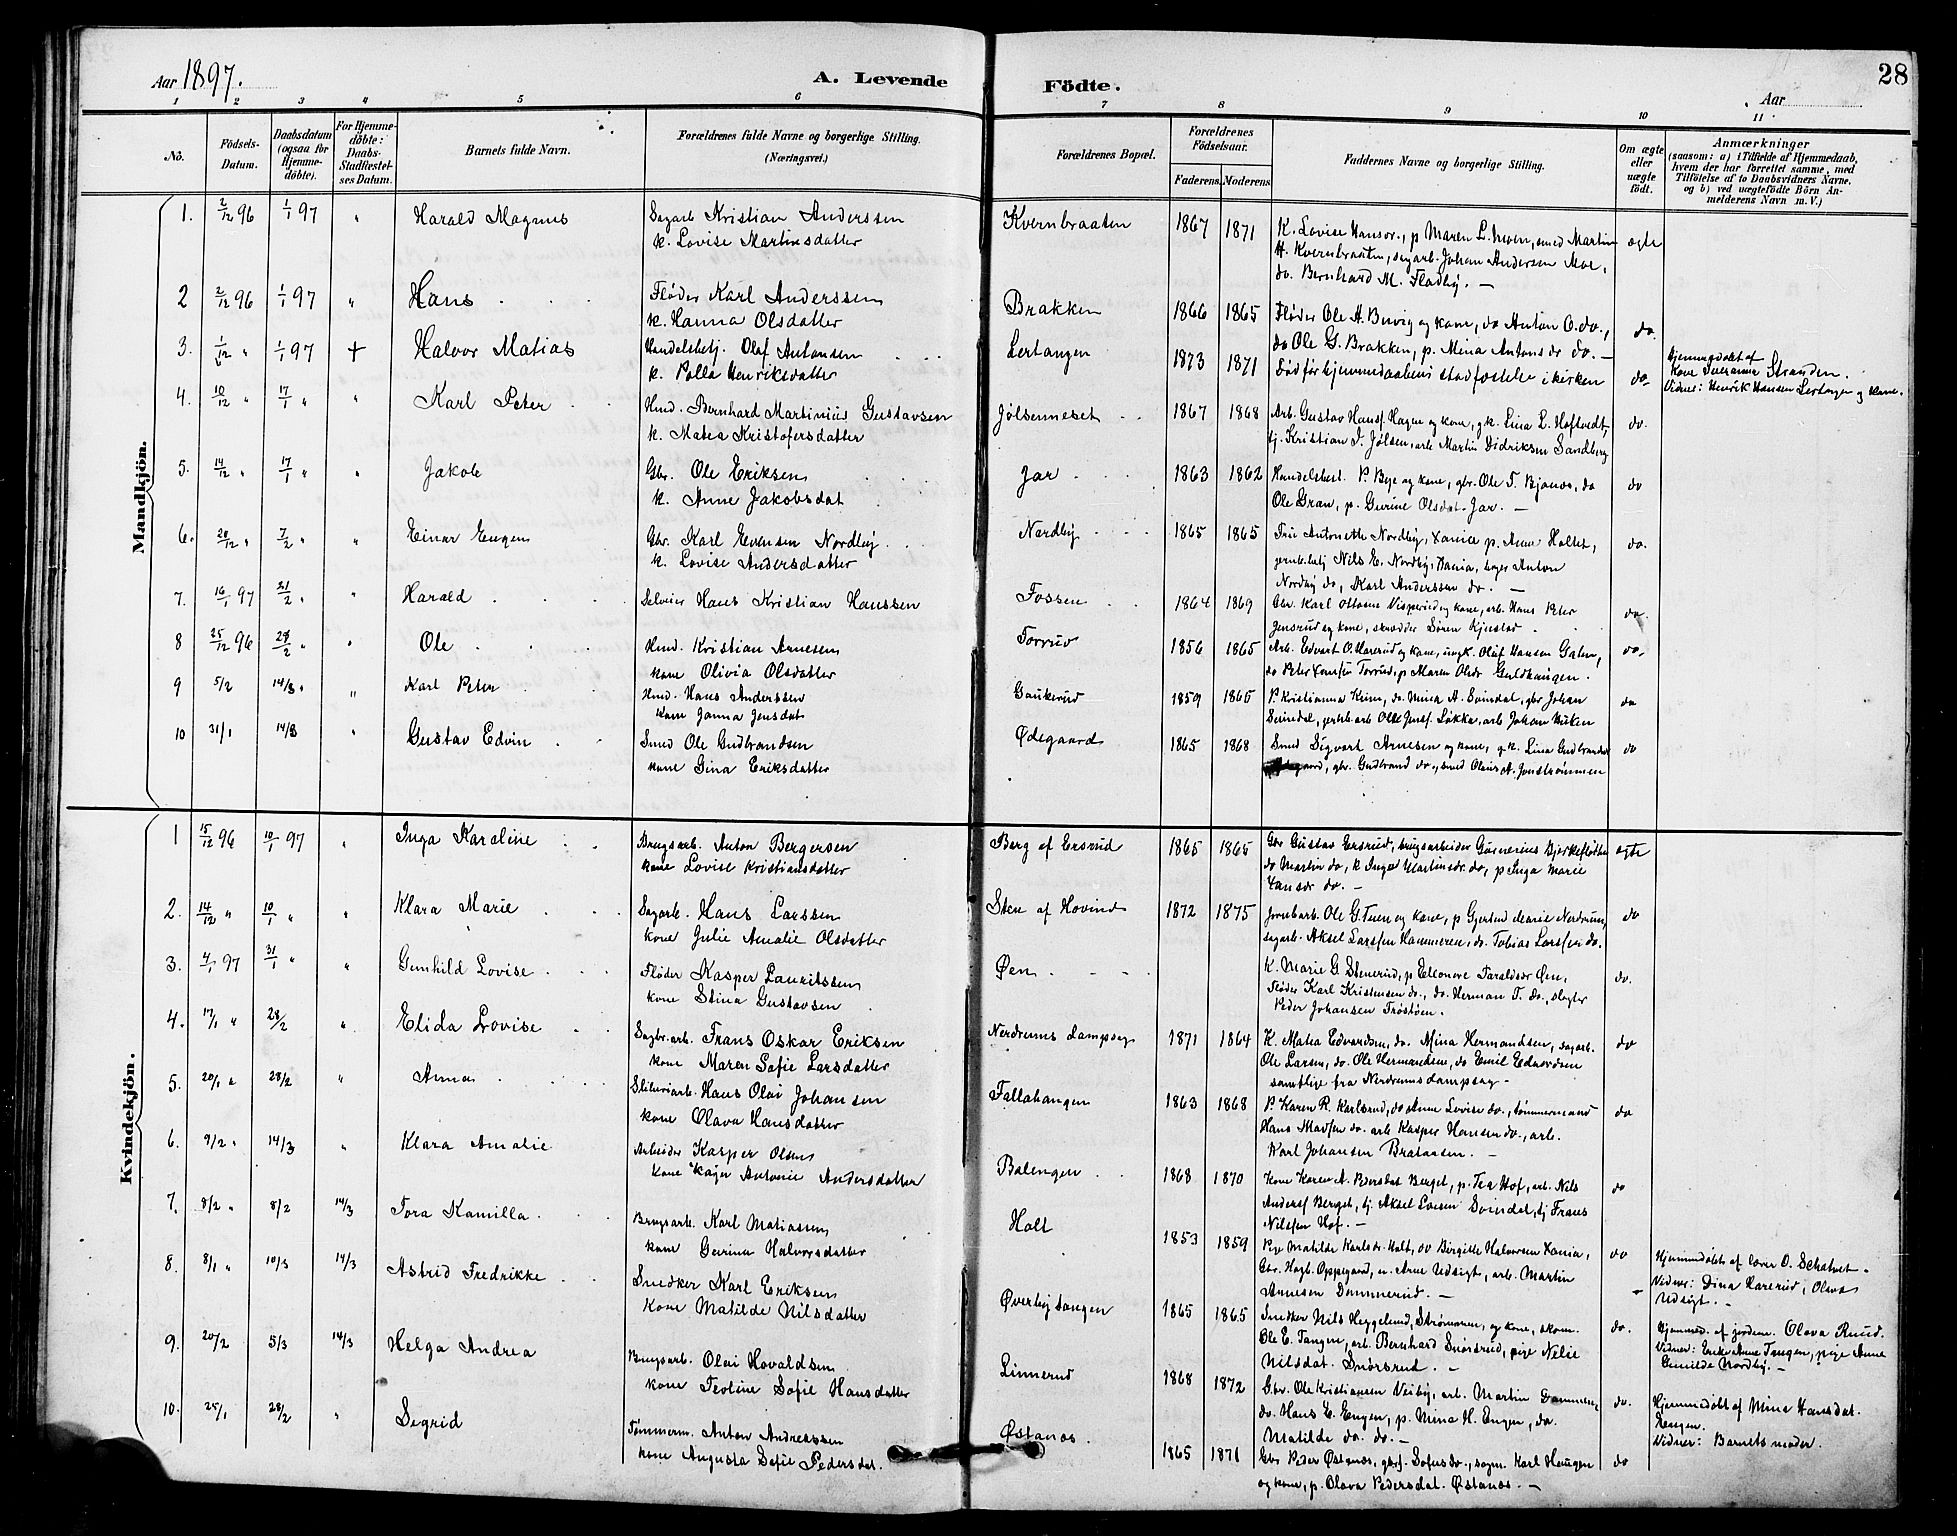 Aar 1897.
A. Levende Födte.
28
Aar
1 2 3 4 5 6 7 8 9 10 11
No.
Födsels-Datum.
Daabsdatum (ogsaa for Hjemme-döbte).
For Hjemme-döbte: Daabs-Stadfæstel-ses Datum.
Barnets fulde Navn.
Forældrenes fulde Navne og borgerlige Stilling. (Næringsvei.)
Forældrenes Bopæl.
Forældrenes Födselsaar.
Faderens. Moderens.
Faddernes Navne og borgerlige Stilling.
Om ægte eller uægte födt.
Anmærkninger
(saasom: a) i Tilfælde af Hjemmedaab, hvem der har forrettet samme, med Tilföielse af to Daabsvidners Navne, og b) ved uægtefödte Börn Anmelderens Navn m. V.)
Mandkjön.
1. 2/12 96 1/1 97 " Harald Magnus
Sagarb. Kristian Anderssen
k. Lovise Martinsdatter
Kvernbraaten 1867 1871
K. Lovise Hansdr., p Maren L. Moen, smed Martin
H. Kvernbraaten, sagarb. Johan Andersen Moe,
do. Bernhard M. Fladby. —
ægte
2 2/12 96 1/1 97 " Hans
Fløder Karl Anderssen
k. Hanna Olsdatter
Brakken 1866 1865
Fløder Ole A. Burig og kone, do Anton O. do.,
do Ole G. Brakken, p. Mina Antonsdr do. —
do.
3. 1/12 " 1/1 97 + Halvor Matias
Handelsbetj. Olaf Antonsen
k. Palla Henriksdatter
Lertangen 1873 1871
Født før hjemmedaabens stadfæstelse i kirken
do
Hjemmedøbt af
Kone Susanna Stranden.
Vidner: Henrik Hansen Lertangen og kone.
4. 10/12 " 17/1 " " Karl Peter
Hmd. Bernhard Martinius Gustavsen
k. Matea Kristofersdatter
Jølsenneset 1867 1868
Arb. Gustav Hansf. Hagen og kone, gk. Lina L. Hoftvedt,
tj. Kristian J. Jølsen, arb Martin Didriksen Sandberg
do.
5. 14/12 " 17/1 " " Jakob
Gbr. Ole Eriksen
k. Anne Jakobsdat
Jar 1863 1862
Handelsbest. P. Bye og kone, gbr. Ole T. Bjanæs, do
Ole Gran, p. Gurine Olsdat. Jar. —
do
6. 20/12 " 7/2 " " Einar Eugen
Gbr. Karl Evensen Nordby
k. Lovise Andersdatter
Nordby 1865 1865
Fru Antonette Nordby, Xania p. Anne Holter,
jernb.betj Nils E. Nordby, Xania, søger Anton
Nordby do, Karl Anderssen do. —
do.
7. 16/1 97 21/2 " " Harald
Selveier Hans Kristian Hanssen
Fossen 1864 1869
Gbr. Karl Ottosen Visperud og kone, arb. Hans Peter
Jensrud og kone, skrædder Søren Kjerstad.
do.
8 25/12 96 28/2 " " Ole
Hmd. Kristian Arnesen
kone Olivia Olsdatter
Torrud 1856 1865
Arb. Edvart O. Harerud og kone, ungk. Oluf Hansen Galen,
do Peter Torrud, p Maren Olsdr Guldhaugen.
do.
9 5/2 14/3 " " Karl Peter
Hmd. Hans Anderssen
kone Janna Jensdat
Gaukerud 1859 1865
P. Kristianna Krim, do. Mina A. Svindal, gbr Johan
Svindal, jernb.arb Olle Jensf. Løkka, arb Johan Viken
do
10 31/1 14/3 " Gustav Edvin
Smed Ole Gudbrandsen
kone Gina Eriksdatter
Ødegaard 1865 1868
Smed Sigvart Arnesen og kone, gk. Lina Gudbrandsd
gbr. Gudbrand do., smed Olaus A. Jonstrømmen
do
Kvindekjön.
1 15/12 96 10/1 97 " Inga Karoline
Brugsarb. Anton Bergersen
kone Lovise Kristiansdatter
Berg af Ersrud 1865 1865
Gbr Gustav Ersrud, brugsarbeider Gunnerius Bjerkeflotten
do Martin do, k Inger Martinsdr. do, p Inga Marie
Hansdr do. —
ægte
2. 14/12 " 10/1 " " Klara Marie
Sagarb. Hans Larssen
kone Julie Amalie Olsdatter
Sten af Hovind 1872 1875
Jernb.arb. Ole G. Tuen og kone, p Gjertrud Marie Nordrum,
sagarb. Aksel Larssen Hammeren, do. Tobias Larssen do.
do
3. 4/1 97 31/1 " " Gunhild Lovise
Fløder Kasper Lauritssen
kone Stina Gustavsen
Øen
K. Marie G Stenerud, p Eleonore Taraldsdr Øen,
Fløder Karl Kristensen do., do. Herman T. do., slagter
Peder Johansen Trøstøen.
do.
4. 17/1 " 28/2 " Elida Lovise
Sagbr.arb. Frans Oskar Eriksen
kone Maren Sofie Larsdatter
Nerdrums dampsag 1871 1864
K. Matea Edvardsen, do. Mina Hermandsen, sagarb.
Ole Larsen, do. Ole Hermandsen, do Emil Edvardsen
samtlige fra Nerdrumsdampsag —
do
5. 20/1 " 28/2 " Anna
Sliberiarb. Hans Olai Johansen
kone Olava Hansdatter
Fallahangen 1863 1868
P. Karen R. Karlsrud, do Anne Lovise do., tømmermand
Hans Madsen do. arb Kasper Hansen do., arb.
Karl Johansen Brataasen. —
do
6. 9/2 " 14/3 " Klara Amalie
Arbeider Kasper Olsen
kone Kaja Antonie Andersdatter
Balengen 1868 1870
Kone Karen A. Pedersdat Berget, p. Tea Hof, arb. Nils
Andersf Berget, tj. Aksel Larsen Svindal, tj Frans
Nilssen Hof. —
do
7. 8/2 " 8/2 14/3 Tora Kamilla
Brugsarb. Karl Matiassen
kone Gurina Halvorsdatter
Holt 1853 1859
Pige Matilde Karlsdr. Holt, do Birgitte Halvorsen Xania,
Gbr. Hagb. Oppegaard, u. Arne Udsigt, arb. Martin
Arnesen Dammerud. —
do
Hjemmedøbt af lærer O. Schatvet.
Vidner: Dina Harerud, Olava
Udsigt. —
8. 8/1 " 10/3 14/3 Astrid Fredrikke
Snedker Karl Eriksen
kone Matilde Nilsdatter
Øverby tangen 1865 1865
Snedker Nils Heggelund, Strømmen, og kone, skom.
Ole E. Tangen, arb. Bernhard Snørsrud, pige Nelie
Nilsdat. Snørsrud. —
do.
Hjemmed. af jordem. Olava Ruud.
Vidner: Enke Anne Tangen, pige Anne
Gunilde Nordby. —
9. 20/2 5/3 14/3 Helga Andrea
Brugsarb. Olai Hovaldsen
kone Teoline Sofie Hansdatter
Linnerud 1868 1872
Gbr. Ole Kristiansen Veiby, arb. Martin Dammen,
do. Hans E. Engen, p. Mina H. Engen, do.
Matilde do. do. —
do.
Hjemmedøbt af Mina Hansdat.
Engen.
Vidner: Barnets moder.
10. 25/1 28/2 " Sigrid
Tømmerm. Anton Andreassen
kone Augusta Sofie Pedersdat.
Østanæs. 1865 1871
Gbr Peder Østanæs, gbrf. Sofus do., sagm. Karl Haugen
og kone, p. Olava Pedersdat. Østanæs. —
do